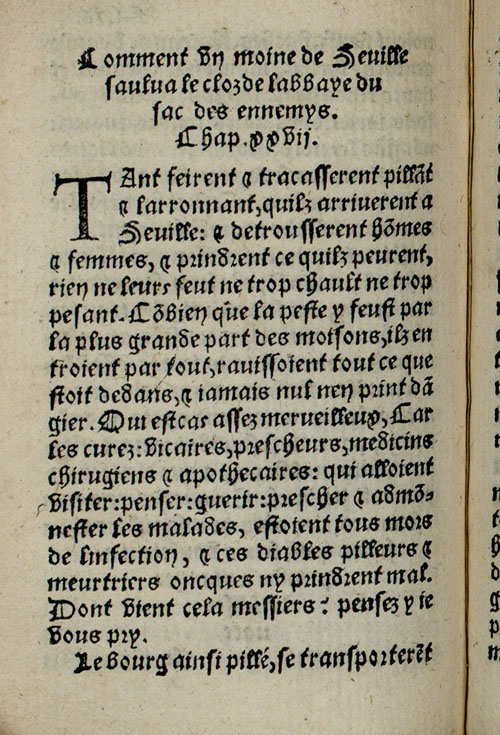 Comment vn moine de Seuille
saulua le cloz de labbaye du
sac des ennemys.
Chap. xxvij.
TAnt feirent ⁊ tracasserent pillãt
⁊ larronnant, quilz arriuerent a
Seuille: ⁊ detrousserent hõmes
⁊ femmes, ⁊ prindrent ce quilz peurent,
rien ne leurs feut ne trop chault ne trop
pesant. Cõbien que la peste y feust par
la plus grande part des moisons, ilz en
troient par tout, rauissoient tout ce que
stoit dedans, ⁊ iamais nul nen print dã
gier. Qui est cas assez merueilleux, Car
les curez: vicaires, prescheurs, medicins
chirugiens ⁊ apothecaires: qui alloient
visiter: penser: guerir: prescher ⁊ admõ-
nester les malades, estoient tous mors
de linfection, ⁊ ces diables pilleurs ⁊
meurtriers oncques ny prindrent mal.
Dont vient cela messiers? pensez y ie
vous pry.
Le bourg ainsi pillé, se transporterẽt